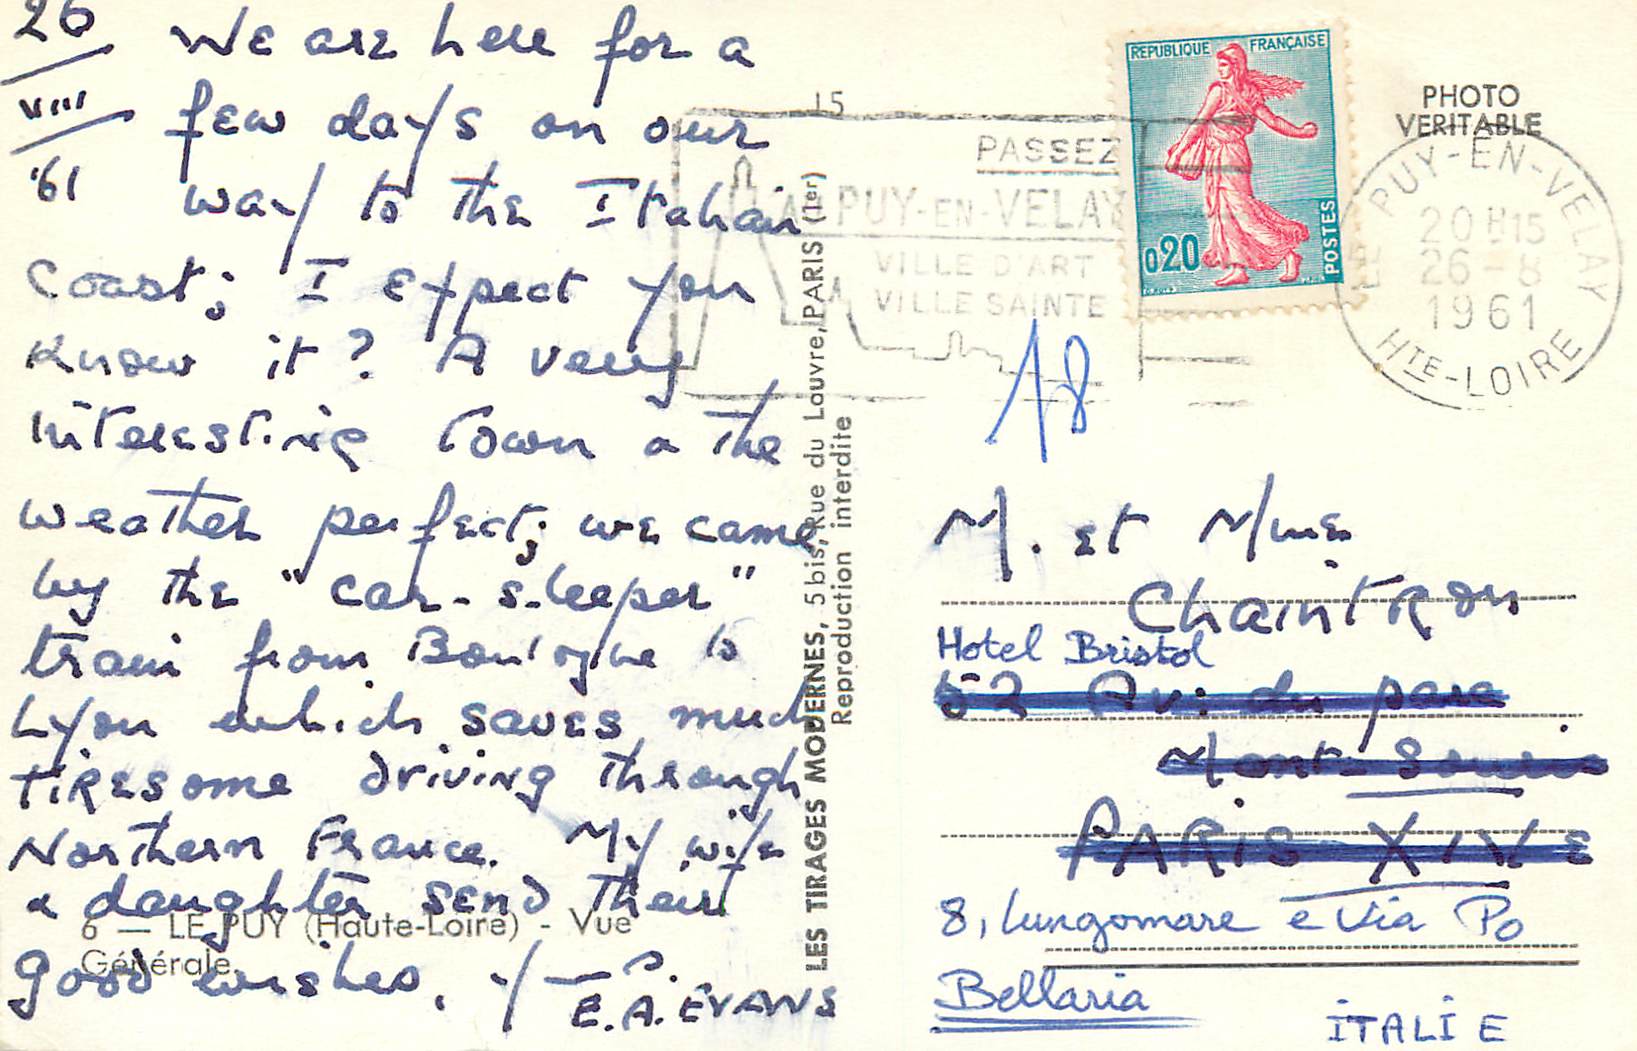 26
VIII
'61
We are here for a
few days on our
way to the Italian
Coast; I expect you
know it? A very
interesting town & the
weather perfect; we came
by the "car-sleeper"
train from Boulogne to
Lyon which saves much
tiresome driving through
Northern France. My wife
& daughter send their
good wishes.
E.A. EVANS
6 — LE PUY (Haute-Loire) - Vue
Générale
LES TIRAGES MODERNES, 5 bis, Rue du Louvre, PARIS (1er)
Reproduction interdite
15
PASSEZ
AU PUY-EN-VELAY
VILLE D'ART
VILLE SAINTE
REPUBLIQUE FRANÇAISE
0,20
POSTES
PHOTO
VERITABLE
LE PUY-EN-VELAY
20H15
26-8
1961
HTE-LOIRE
18
M. et Mme
Chaintron
Hotel Bristol
52 Av: du parc
Mont-Souris
PARIS XIVE
8, lungomare e Via Po
Bellaria
ITALIE